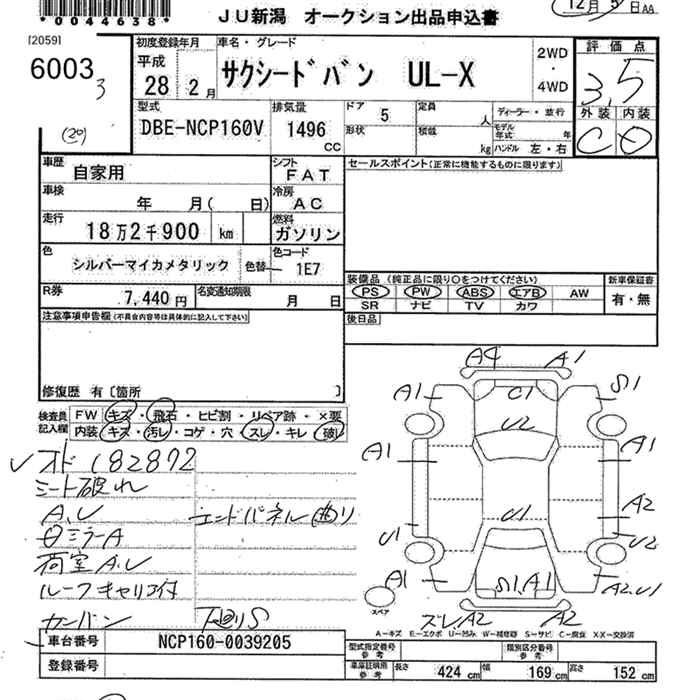 *0044638*
JU新潟 オークション出品申込書
12月 5日 AA
[2059]
6003
3
初度登録年月
平成
28年 2月
車名・グレード
サクシードバン UL-X
2WD
・
4WD
評価点
3.5
型式
DBE-NCP160V
排気量
1496
CC
ドア 5
形状
定員 人
積載 kg
ディーラー・並行
モデル年式 年
ハンドル 左・右
外装 内装
C D
車歴
自家用
シフト
FAT
セールスポイント(正常に機能するものに限ります)
車検
年 月( 日)
冷房
AC
走行
18万2千900 km
燃料
ガソリン
色
シルバーマイカメタリック
色替
色コード
1E7
R券
7,440円
名変通知期限
月 日
装備品 (純正品に限り○をつけてください)
PS PW ABS エアB AW
SR ナビ TV カワ
新車保証書
有・無
後日品
注意事項申告欄(不具合内容等は具体的に記入して下さい)
修復歴 有 [箇所 ]
検査員記入欄
FW キズ・飛石・ヒビ割・リペア跡・×要
内装 キズ・汚レ・コゲ・穴・スレ・キレ・破レ
オド 182872
シート破れ
A,U
エンドパネル曲り
ミラーA
荷室A,U
ルーフキャリア付
カンバン
下回りS
A4 A1
A1 C1 S1
U2
A1 A1
A2
U1 U1 U2
A1 S1,A1 A2,U1
スペア
ズレA2 A2
A−キズ E−エクボ U−凹み W−補修跡 S−サビ C−腐食 X,XX−交換済
車台番号
NCP160-0039205
登録番号
型式指定番号
参考
類別区分番号
参考
車庫証明用
参考
長さ 424 cm 幅 169 cm 高さ 152 cm